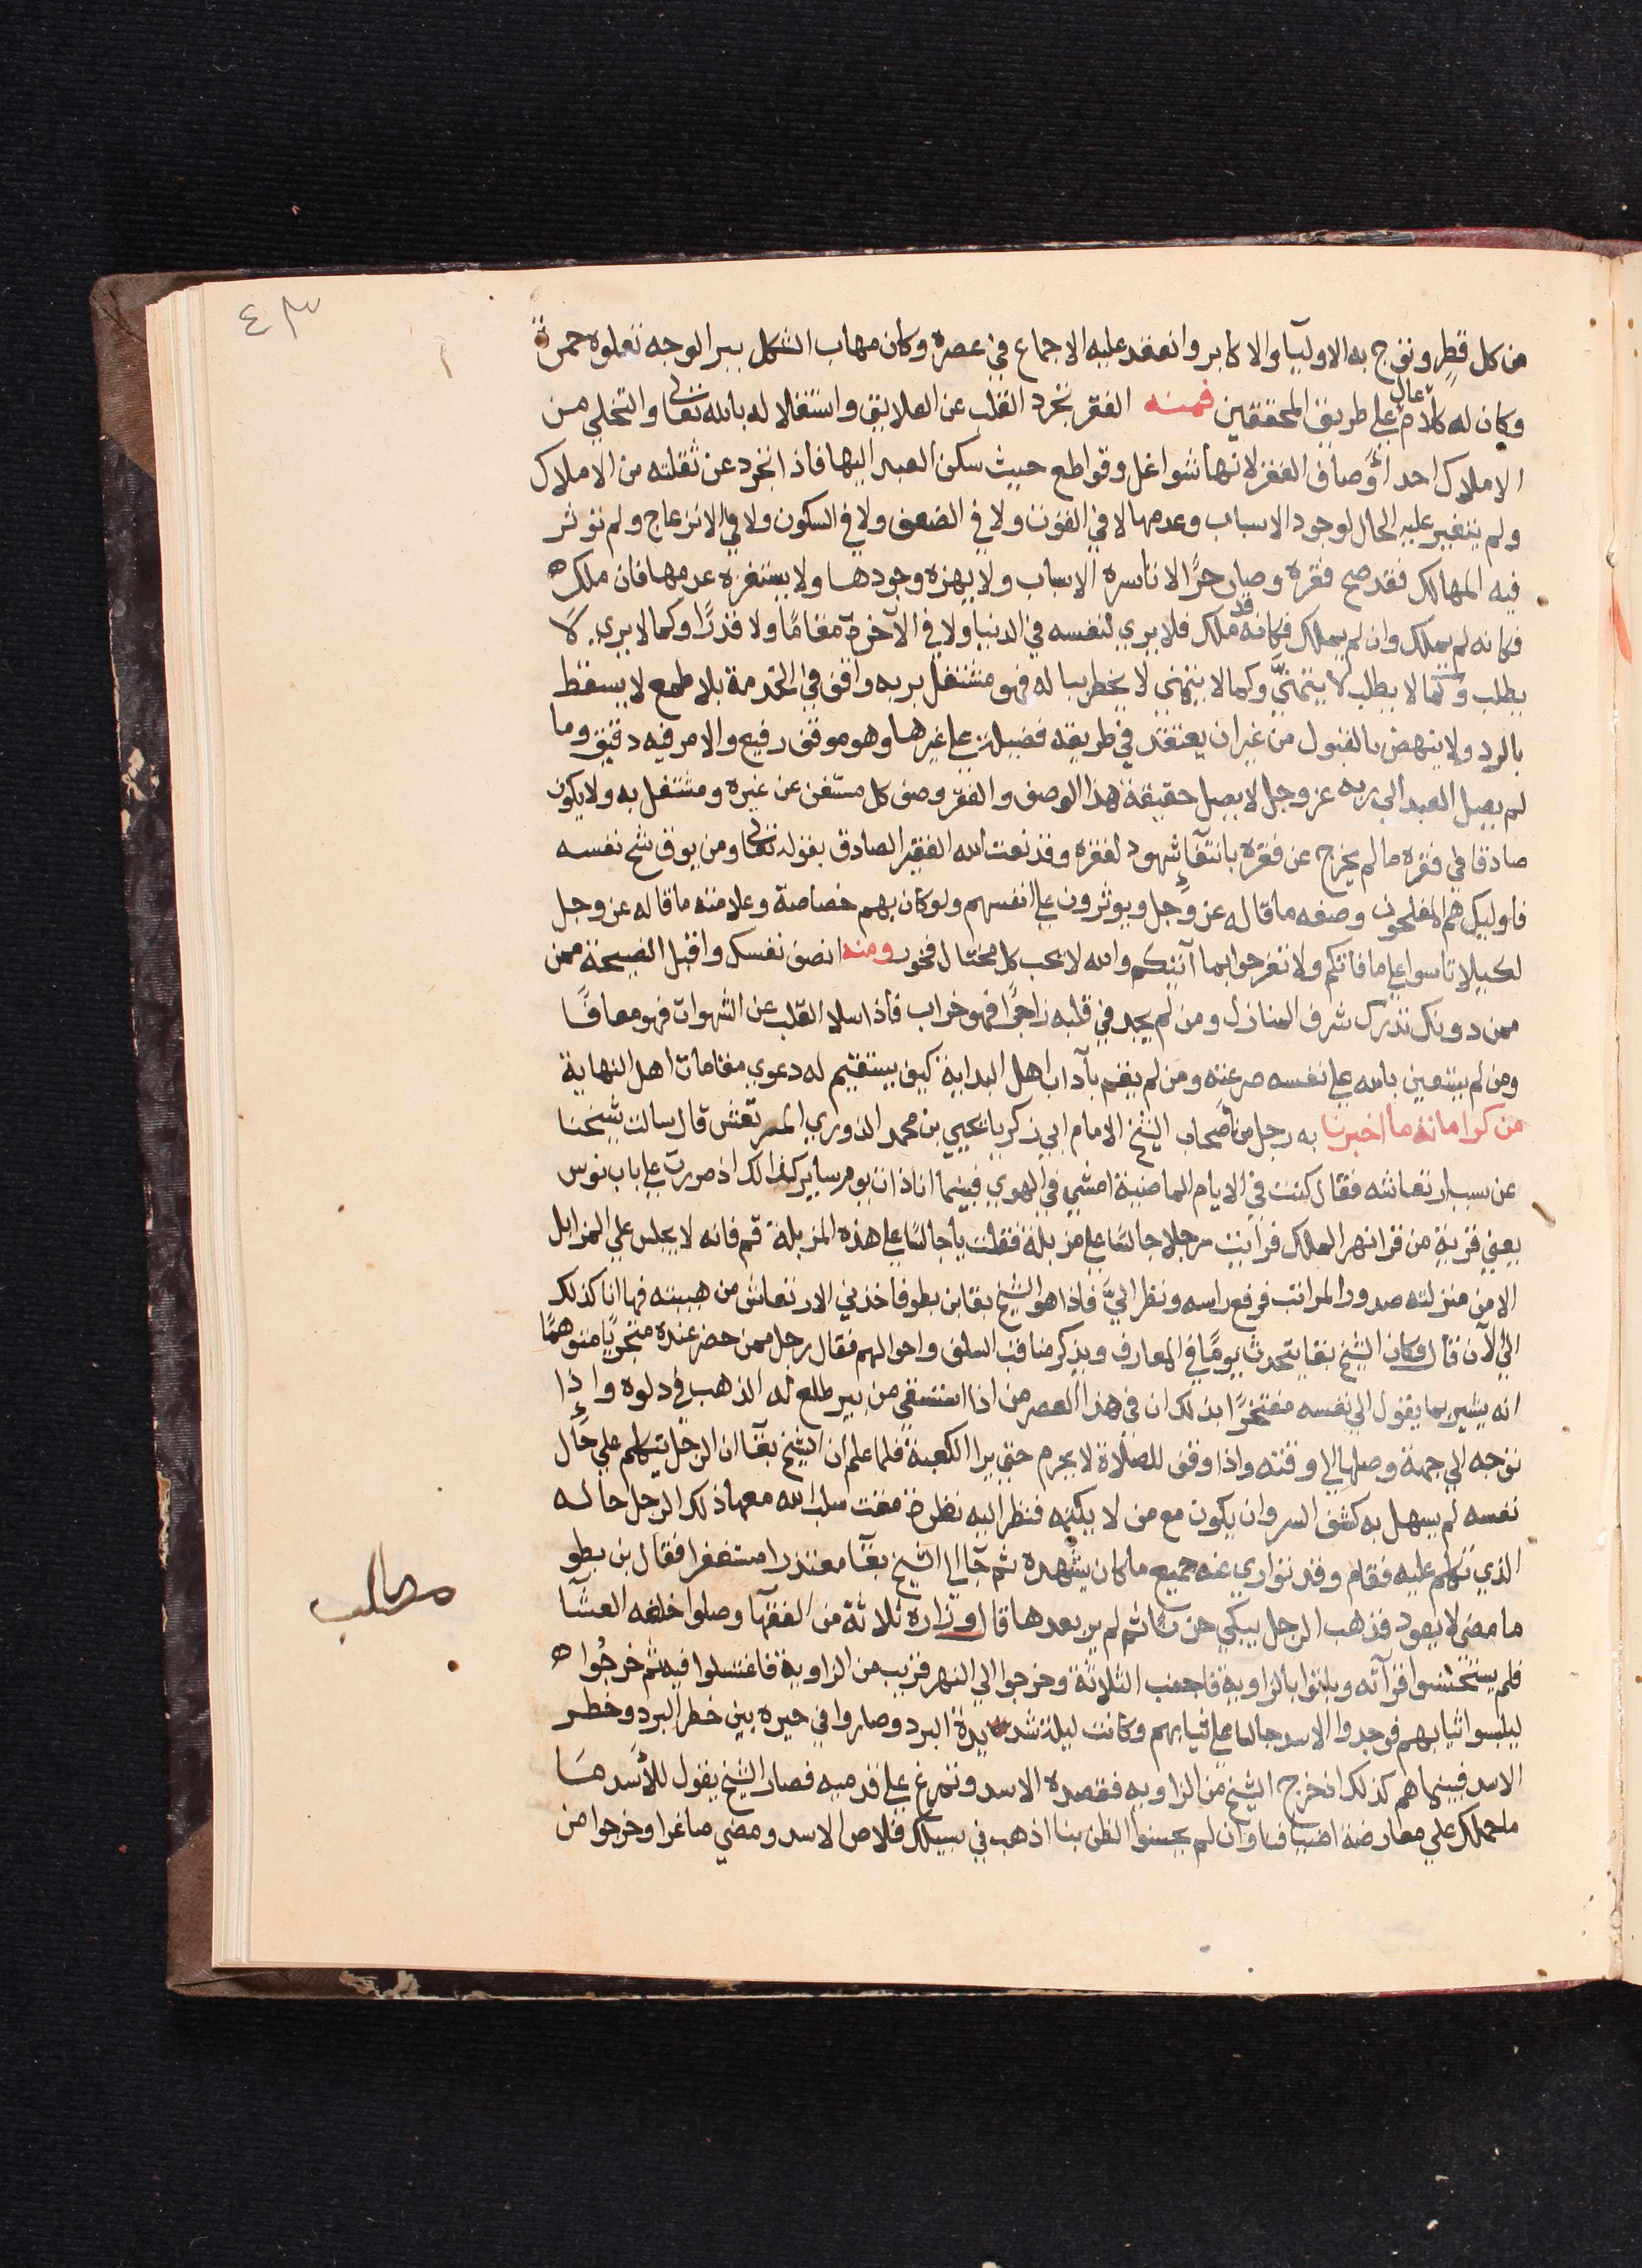 ٤٣
من كل قطر وتوج به الاوليآ والاكابر وانعقد عليه الاجماع في عصره وكان مهاب الشكل بير الوجه تعلوه حمرة
وكان له كلام عال علي طريق المحققين فمنه الفقر تجرد القلب عن العلايق واشتغالا له بالله تعالى والتخلي من
الاملاك احد اوصاف الفقر لانها شواغل وقواطع حيث سكن العبد اليها فاذا تجرد عن ثقلته من الاملاك
ولم يتغير عليه الحال لوجود الاسباب وعدمها لا في القوة ولا في الضعف ولا في السكون ولا في الانزعاج ولم تؤثر
فيه المهالك فقد صح فقره وصار حرًا لا تاسره الاسباب ولا يهزه وجودها ولا يستفزه عدمها فان ملك
فكانه لم يملك وان لم يملك فكانه قد ملك فلا يري لنفسه في الدنيا ولا في الآخرة مقامًا ولا قدرًا وكما لا يري لا
يطلب وكما لا يطلب لا يتمنيَّ وكما لا يتمني لا يخطر بباله فهو مشتغل بربه واقف في الخدمة بلا طمع لا يسقط
بالرد ولا ينهض بالقبول من غير ان يعتقد في طريقه فضيلة علي غيرها وهو موقف رفيع والامر فيه دقيق وما
لم يصل العبد الي ربه عز وجل لا يصل حقيقة هذا الوصف والفقر وصف كل مستغن عن غيره ومشتغل به ولا يكون
صادقا في فقره ما لم يخرج عن فقره بانتفآ شهود لفقره وقد نعت الله الفقير الصادق بقوله تعالى ومن يوق شح نفسه
فاوليك هم المفلحون وصفه ما قاله عز وجل ويوثرون علي انفسهم ولو كان بهم خصاصة وعلامته ما قاله عز وجل
لكيلا تاسوا علي ما فاتكم ولا تفرحوا بما آتيكم والله لا يحب كل مختال فخور ومنه انصف نفسك واقبل النصيحة ممن
ممن دونك تدرك شرف المنازل ومن لم يجد في قلبه زاجرًا فهو خراب فاذا سلا القلب عن الشهوات فهو معافًا
ومن لم يستعين بالله علي نفسه صرعته ومن لم يقم بآداب اهل البداية كيف يستقيم له دعوي مقامات اهل النهاية
من كراماته ما اخبرنا به رجل من اصحاب الشيخ الامام ابي زكريا يحيي بن محمد الدوري المرتعش قال سالت شيخنا
عن سبب ارتعاشه فقال كنت في الايام الماضية امشي في الهوي فبينما انا ذات يوم ساير كذالك اذ مررت علي باب نوس
يعني قرية من قرا نهر الملك فرايت رجلا جالسًا علي مزبلة فقلت يا جالسًا علي هذه المزبلة قم فانه لا يجلس علي المزابل
الا من منزلته صدور المراتب فرفع راسه ونظر اليَّ فاذا هو الشيخ بقا بن بطو فاخذني الارتعاش من هيبته فها انا كذلك
الي الآن قال وكان الشيخ بقا يتحدث يومًا في المعارف ويذكر مناقب السلف واحوالهم فقال رجل ممن حضر عنده متحريًا متوهمًا
انه يشير بما يقول الي نفسه مفتخرًا بذلك ان في هذا العصر من اذا استسقي من بير طلع له الذهب في دلوه واذا
توجه الي جهة وصلها الي وقته واذا وقف للصلاة لا يحرم حتي يرا الكعبة فلما علم ان الشيخ بقآ ان الرجل يتكلم علي حال
نفسه لم يسهل به كشف السر وان يكون مع من لا يكتمه فنظر اليه نظرة مقت سلب الله معها ذلك الرجل حاله
الذي تكلم عليه فقام وقد تواري عنه جميع ما كان يشهده ثم جآ الي الشيخ بقآ معتذرا مستغفرا فقال بن بطو
ما مضي لا يعود فذهب الرجل يبكي حزنا ثم لم ير بعدها قال وزاره ثلاثة من الفقهآ وصلوا خلفه العشآ
مطلب
فلم يستحسنوا قرآته وباتوا بالزاوية فاجنب الثلاثة وخرجوا الي النهر قريب من الزاوية فاغتسلوا فيه ثم خرجوا
ليلبسوا ثيابهم فوجدوا الاسد جالسا علي ثيابهم وكانت ليلة شديدة البرد وصاروا في حيره بين خطر البرد وخطر
الاسد فبينما هم كذلك اذ خرج الشيخ من الزاويه فقصده الاسد وتمرغ علي قدميه فصار الشيخ يقول للاسد ما
ما حملك علي معارضة اضيافنا وان لم يحسنوا الظن بنا اذهب في سبيلك فلاص الاسد ومضي صاغرا وخرجوا من